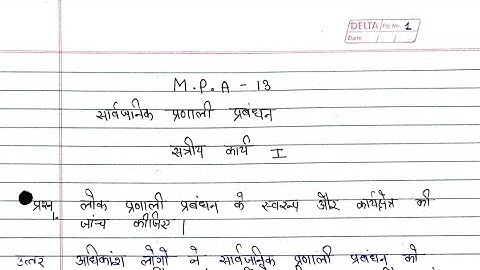 DELTA Pg No. 1
Date / /
M.P.A - 13
सार्वजानिक प्रणाली प्रबंधन
सत्रीय कार्य I
प्रश्न 1. लोक प्रणाली प्रबंधन के स्वरूप और कार्यक्षेत्र की
जांच कीजिए।
उत्तर अधिकांश लोगो ने सार्वजनिक प्रणाली प्रबंधन को